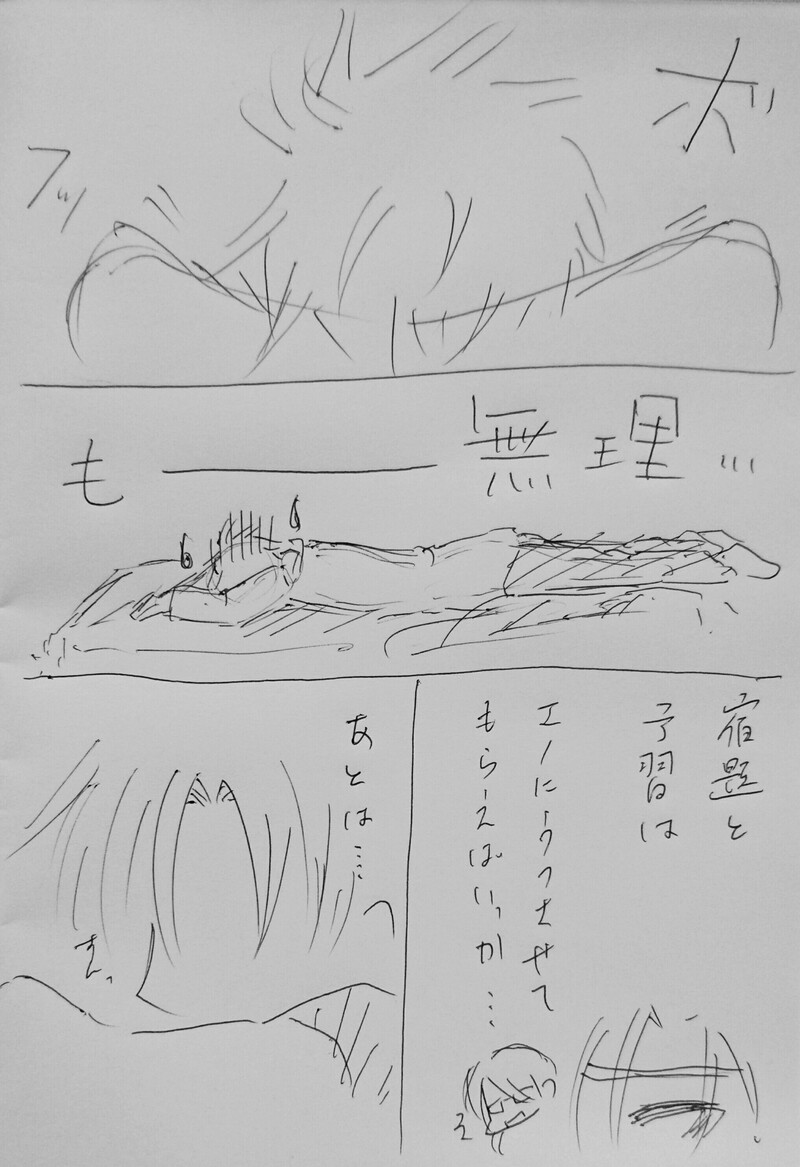 ボ
フッ
も―無理…
宿題と
予習は
エノにーウツさせて
もらえばいっか…
あとは…